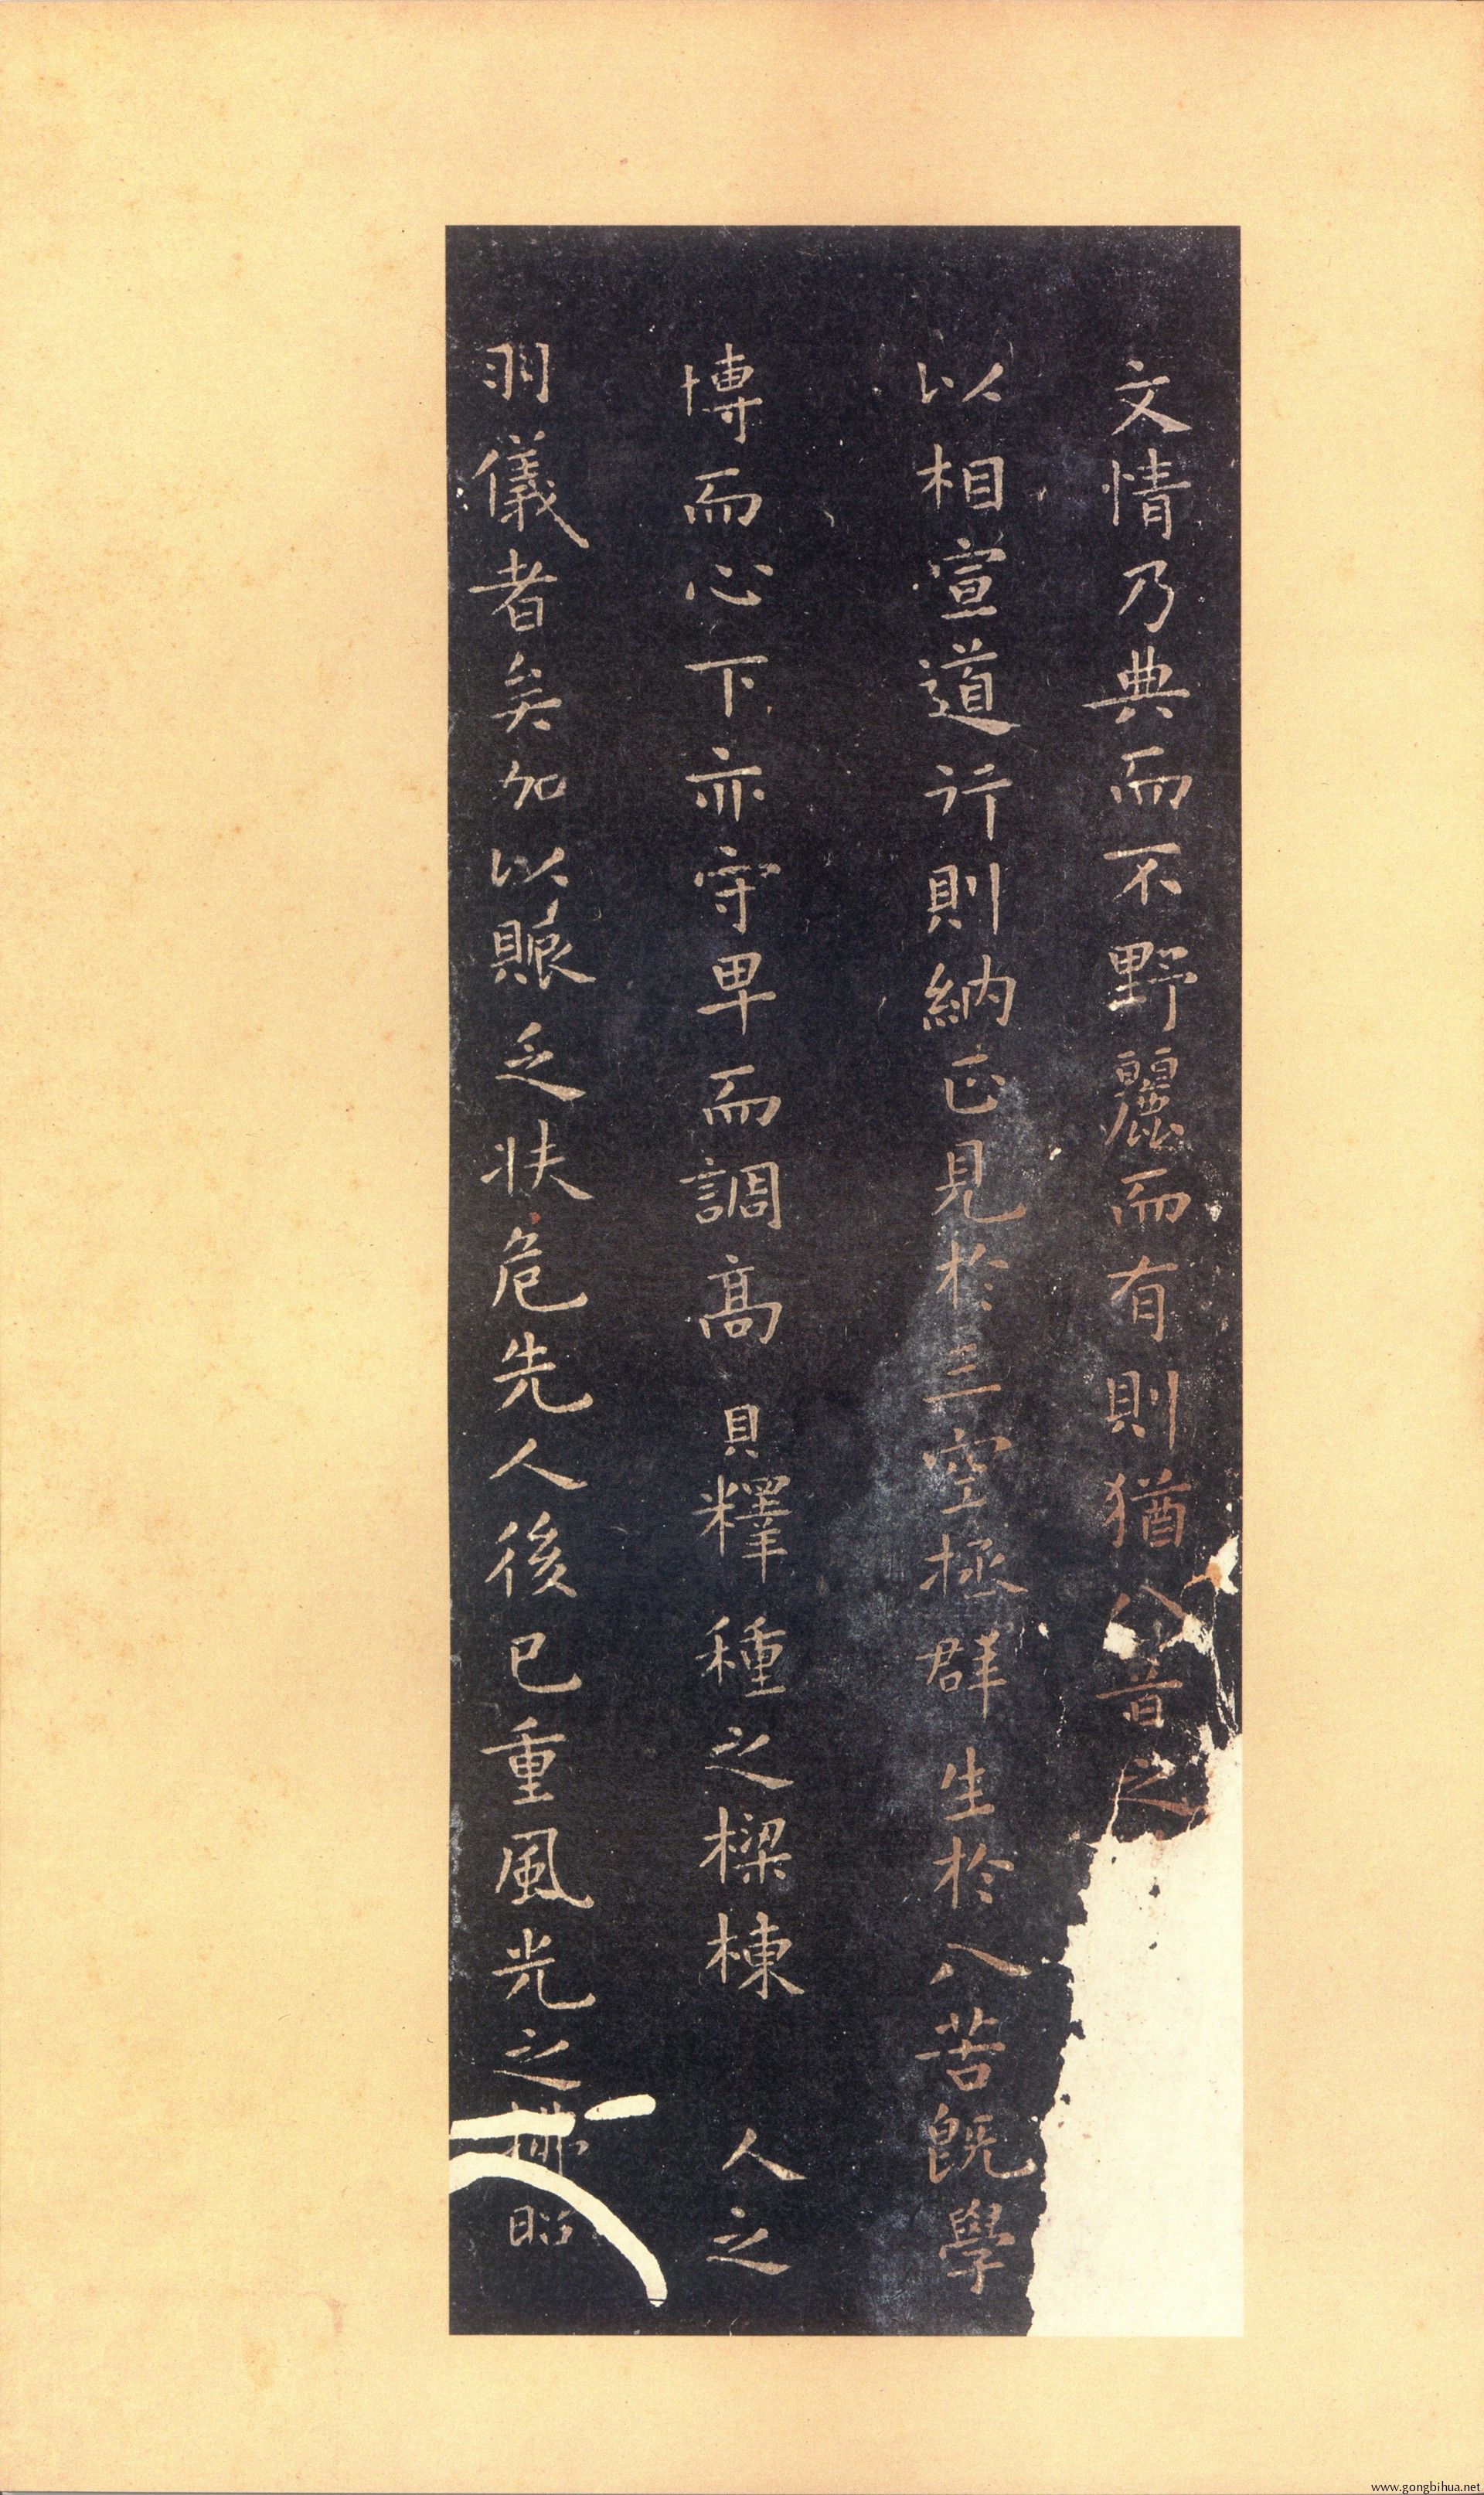 文情乃典而不野麗而有則猶八音之
以相宣道行則納正見於三空拯群生於八苦既學
博而心下亦守卑而調高實釋種之樑棟人之
羽儀者矣加以賑乏扶危先人後已重風光之拂照
www.gongbihua.net